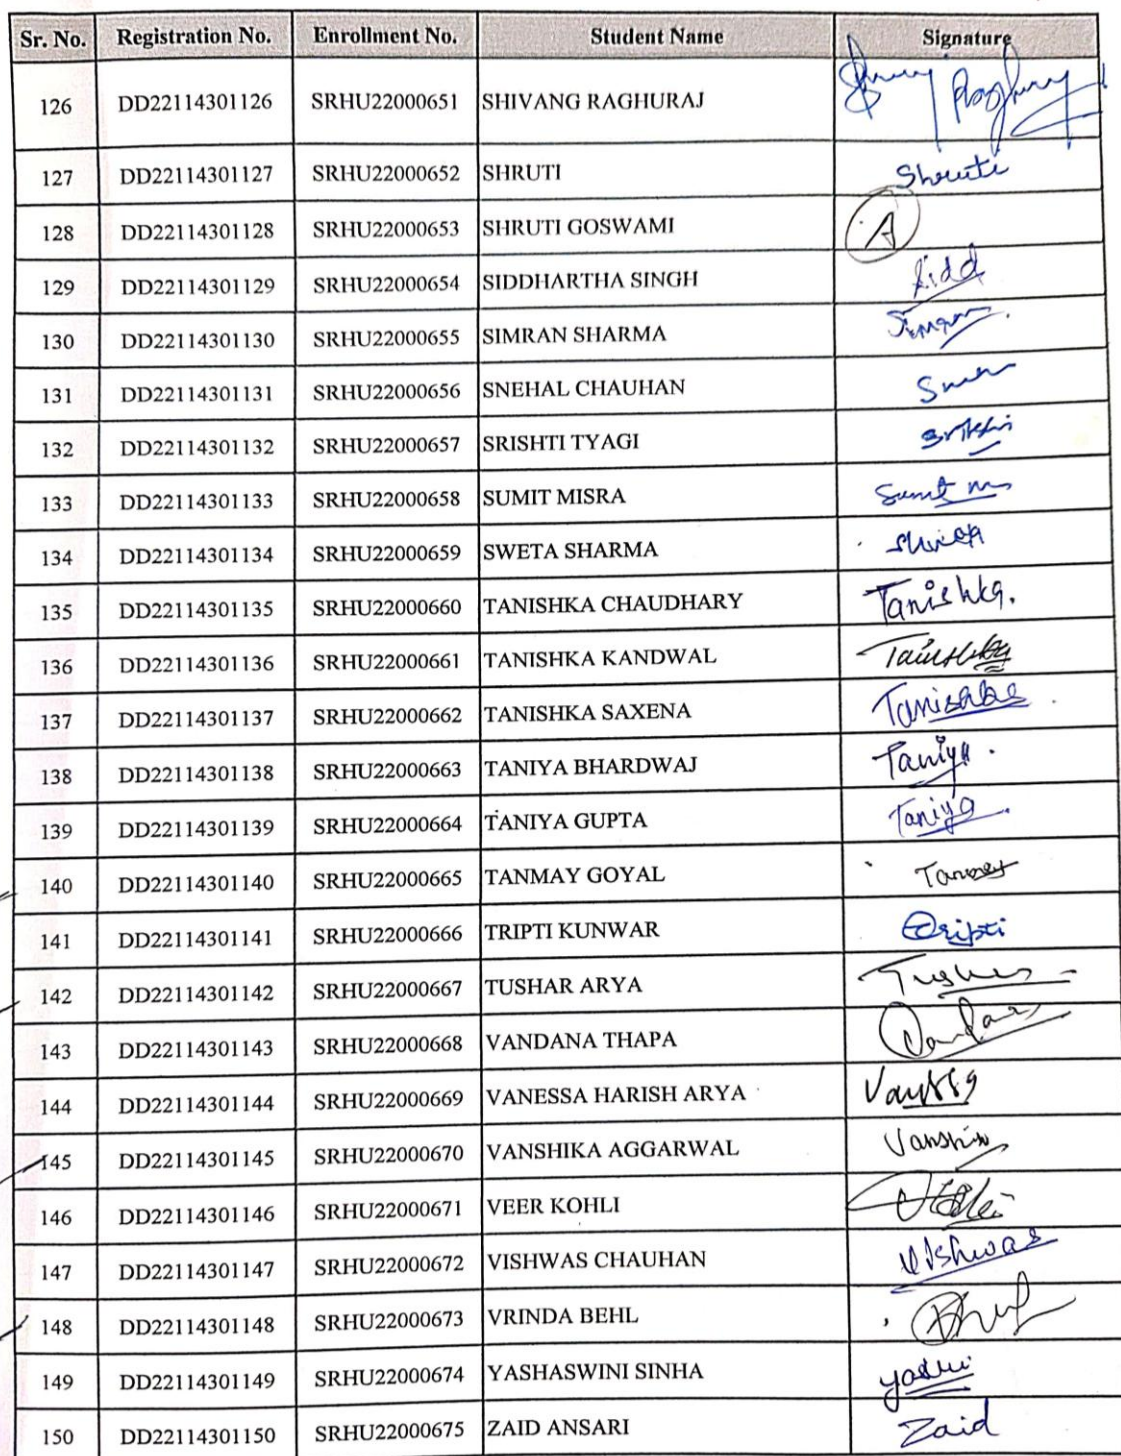 Sr. No. Registration No. Enrollment No. Student Name Signature
126 DD22114301126 SRHU22000651 SHIVANG RAGHURAJ
127 DD22114301127 SRHU22000652 SHRUTI Shruti
128 DD22114301128 SRHU22000653 SHRUTI GOSWAMI A
129 DD22114301129 SRHU22000654 SIDDHARTHA SINGH Sidd
130 DD22114301130 SRHU22000655 SIMRAN SHARMA
131 DD22114301131 SRHU22000656 SNEHAL CHAUHAN
132 DD22114301132 SRHU22000657 SRISHTI TYAGI
133 DD22114301133 SRHU22000658 SUMIT MISRA Sumit
134 DD22114301134 SRHU22000659 SWETA SHARMA
135 DD22114301135 SRHU22000660 TANISHKA CHAUDHARY Tanishka.
136 DD22114301136 SRHU22000661 TANISHKA KANDWAL Tanishka
137 DD22114301137 SRHU22000662 TANISHKA SAXENA Tanishka
138 DD22114301138 SRHU22000663 TANIYA BHARDWAJ Taniya.
139 DD22114301139 SRHU22000664 TANIYA GUPTA Taniya.
140 DD22114301140 SRHU22000665 TANMAY GOYAL Tanmay
141 DD22114301141 SRHU22000666 TRIPTI KUNWAR Tripti
142 DD22114301142 SRHU22000667 TUSHAR ARYA
143 DD22114301143 SRHU22000668 VANDANA THAPA
144 DD22114301144 SRHU22000669 VANESSA HARISH ARYA
145 DD22114301145 SRHU22000670 VANSHIKA AGGARWAL
146 DD22114301146 SRHU22000671 VEER KOHLI
147 DD22114301147 SRHU22000672 VISHWAS CHAUHAN Vishwas
148 DD22114301148 SRHU22000673 VRINDA BEHL
149 DD22114301149 SRHU22000674 YASHASWINI SINHA
150 DD22114301150 SRHU22000675 ZAID ANSARI Zaid